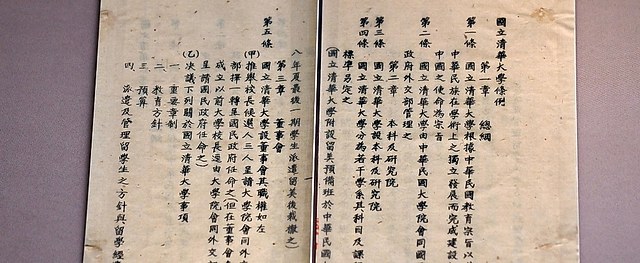 國立清華大學條例
第一章　總綱
第一條　國立清華大學根據中華民國教育宗旨以
中華民族在學術上之獨立發展而完成建設
中國之使命為宗旨
第二條　國立清華大學由中華民國大學院會同國
政府外交部管理之
第二章　本科及研究院
第三條　國立清華大學設本科及研究院
第四條　國立清華大學分為若干學系其科目及課程
標準另定之
(國立清華大學附設留美預備班於中華民國
八年夏最後一期學生派遣留美後裁撤之)
第三章　董事會
第五條　國立清華大學設董事會其職權如左
(甲)推舉校長候選人三人呈請大學院會同外
部擇一轉呈國民政府任命之(但在董事會
成立以前大學校長逕由大學院會同外交
呈請國民政府任命之)
(乙)決議下列關於國立清華大學事項
一、重要章制
二、教育方針
三、預算
四、派遣及管理留學生之方針與留學經